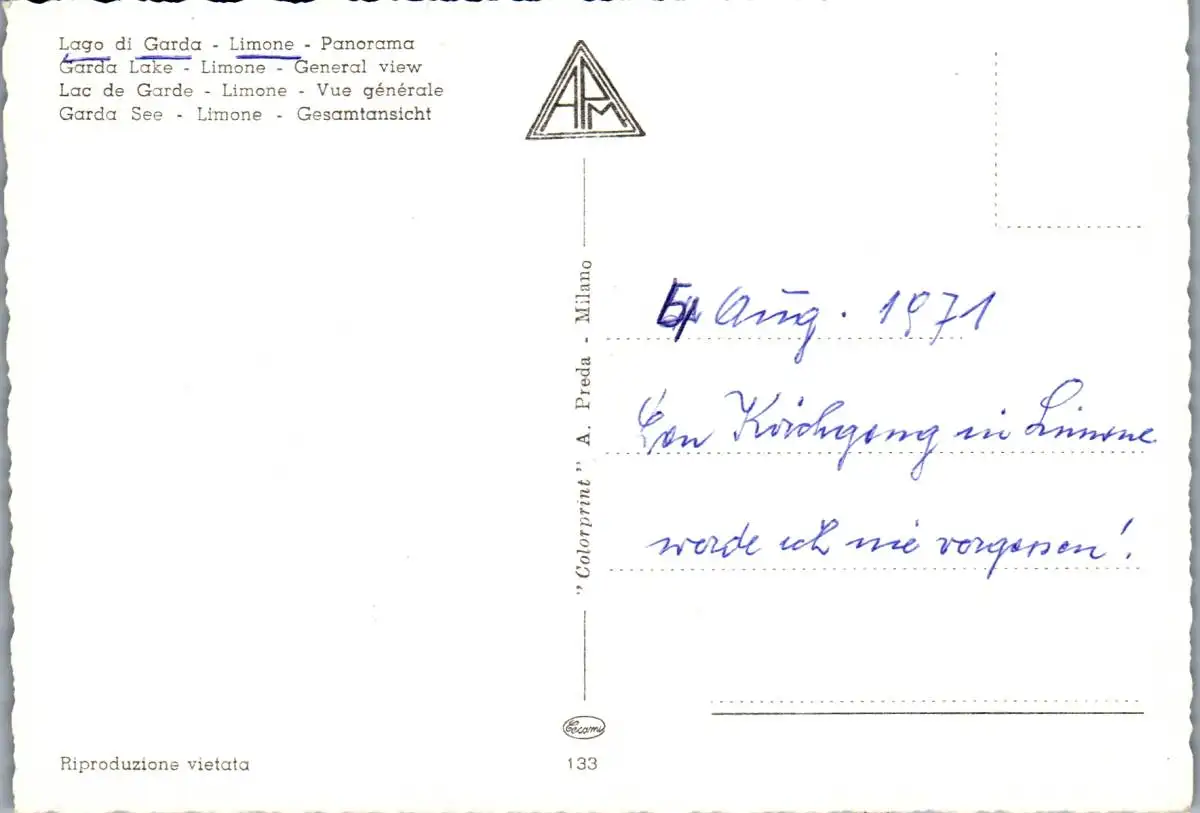 Lago di Garda - Limone - Panorama
Garda Lake - Limone - General view
Lac de Garde - Limone - Vue générale
Garda See - Limone - Gesamtansicht
APM
"Colorprint" A. Preda - Milano
Aug. 1971
Kirchgang in Limone
werde ich nie vergessen!
Cecami
Riproduzione vietata
133